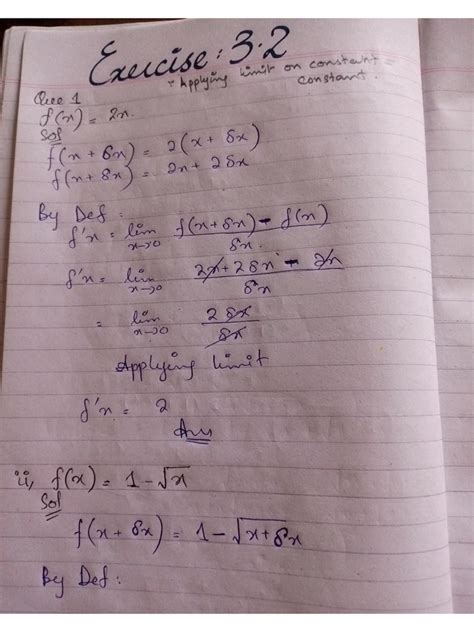 Exercise: 3.2
* Applying limit on constant =
constant.
Que 1
f(x) = 2x.
Sol
f(x + δx) = 2(x + δx)
f(x + δx) = 2x + 2δx
By Def:
f'x = lim x→0 f(x+δx) - f(x) / δx.
f'x = lim x→0 2x + 2δx - 2x / δx
= lim x→0 2δx / δx
Applying limit
f'x = 2
Ans
ii, f(x) = 1 - √x
Sol
f(x + δx) = 1 - √x+δx
By Def: